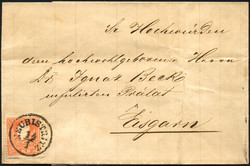 Sr Hochwürden
dem hochwohlgebornen Herrn
Dr. Ignaz Beck
infulirten Prälat
Eisgarn